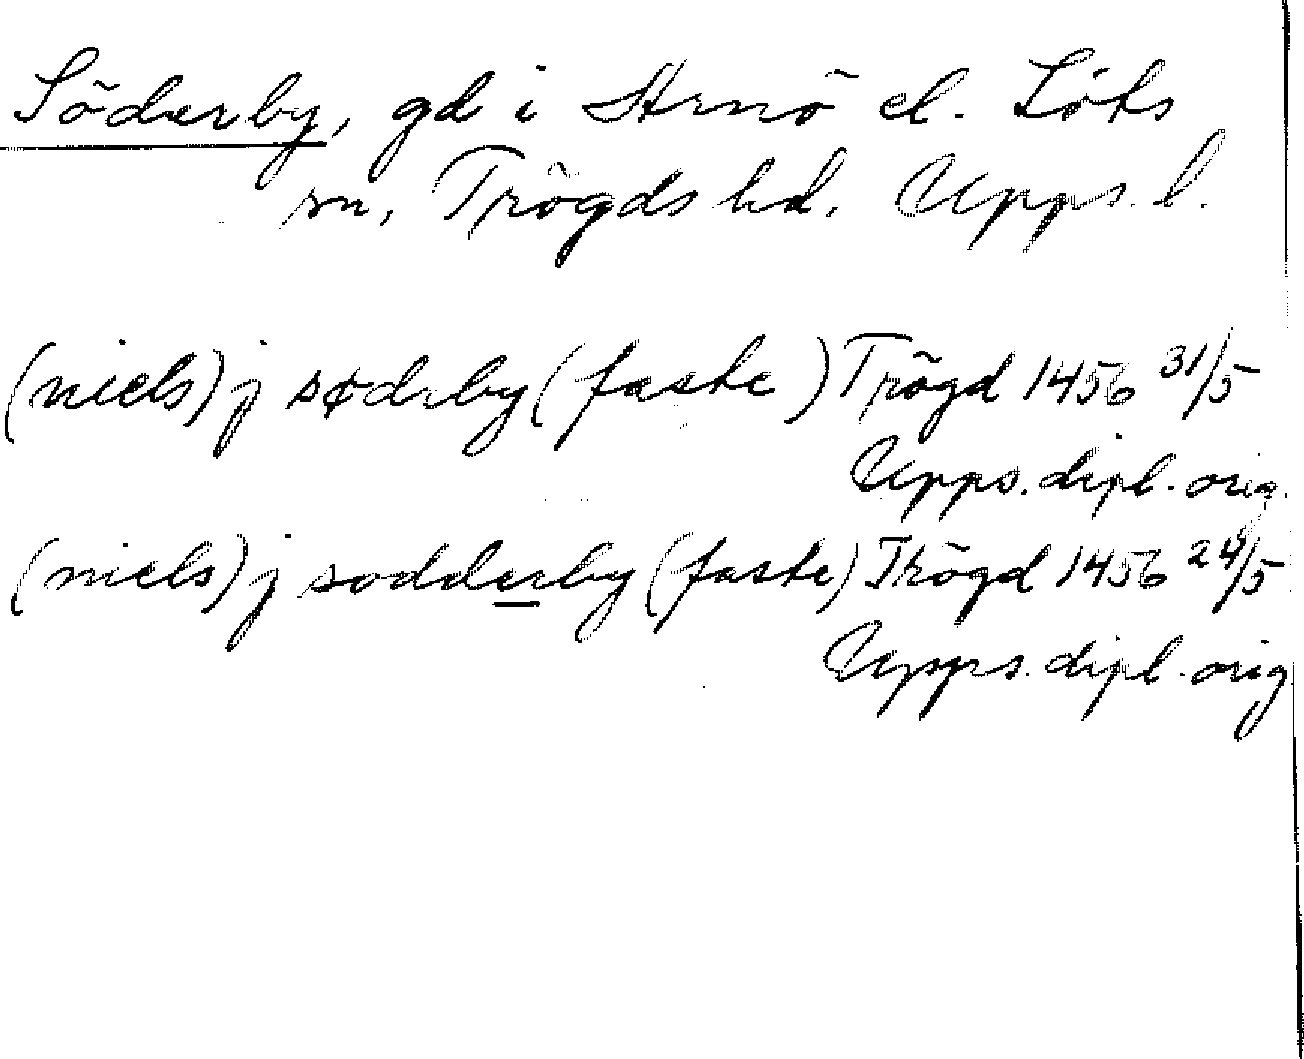 Söderby, gd i Arnö el. Löts
sn, Trögds hd. Upps. l.
(niels) j sødrby (faste) Trögd 1456 31/5
Upps. dipl. orig.
(niels) j sodderby (faste) Trögd 1456 24/5
Upps. dipl. orig